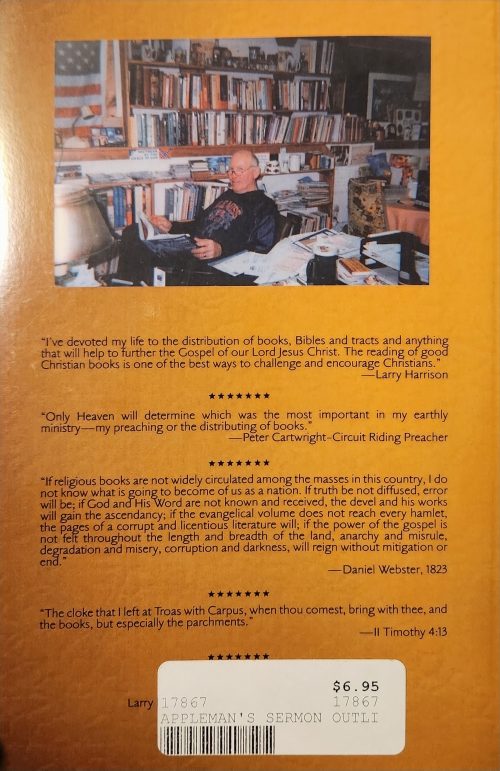 “I’ve devoted my life to the distribution of books, Bibles and tracts and anything
that will help to further the Gospel of our Lord Jesus Christ. The reading of good
Christian books is one of the best ways to challenge and encourage Christians.”
—Larry Harrison
“Only Heaven will determine which was the most important in my earthly
ministry—my preaching or the distributing of books.”
—Peter Cartwright–Circuit Riding Preacher
“If religious books are not widely circulated among the masses in this country, I do
not know what is going to become of us as a nation. If truth be not diffused, error
will be; if God and His Word are not known and received, the devel and his works
will gain the ascendancy; if the evangelical volume does not reach every hamlet,
the pages of a corrupt and licentious literature will; if the power of the gospel is
not felt throughout the length and breadth of the land, anarchy and misrule,
degradation and misery, corruption and darkness, will reign without mitigation or
end.”
—Daniel Webster, 1823
“The cloke that I left at Troas with Carpus, when thou comest, bring with thee, and
the books, but especially the parchments.”
—II Timothy 4:13
$6.95
Larry 17867 17867
APPLEMAN'S SERMON OUTLI